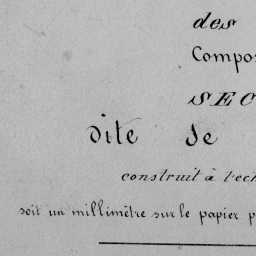 des
Compos
SEC
dite de
construit à l'ech
soit un millimètre sur le papier p